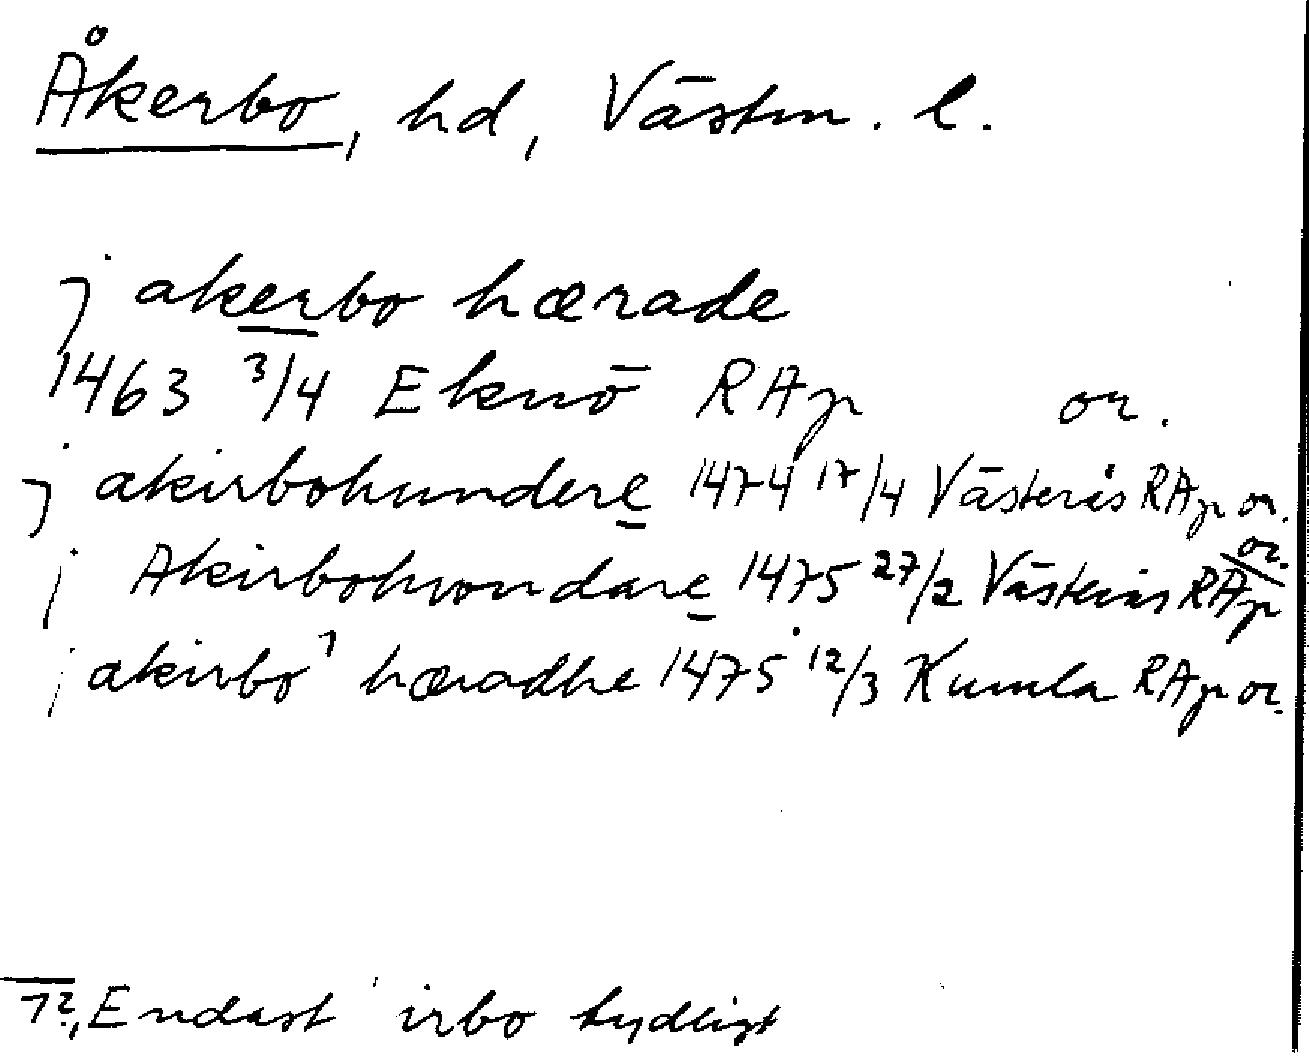 Åkerbo, hd, Västm. l.
j akerbo hærade
1463 3/4 Eknö RAp or.
j akirbohundere 1474 17/4 Västerås RAp or.
j Akirbohvondare 1475 27/2 Västerås RAp or.
j akirbo ¹ hæradhe 1475 12/3 Kumla RAp or.
1?, Endast irbo tydligt